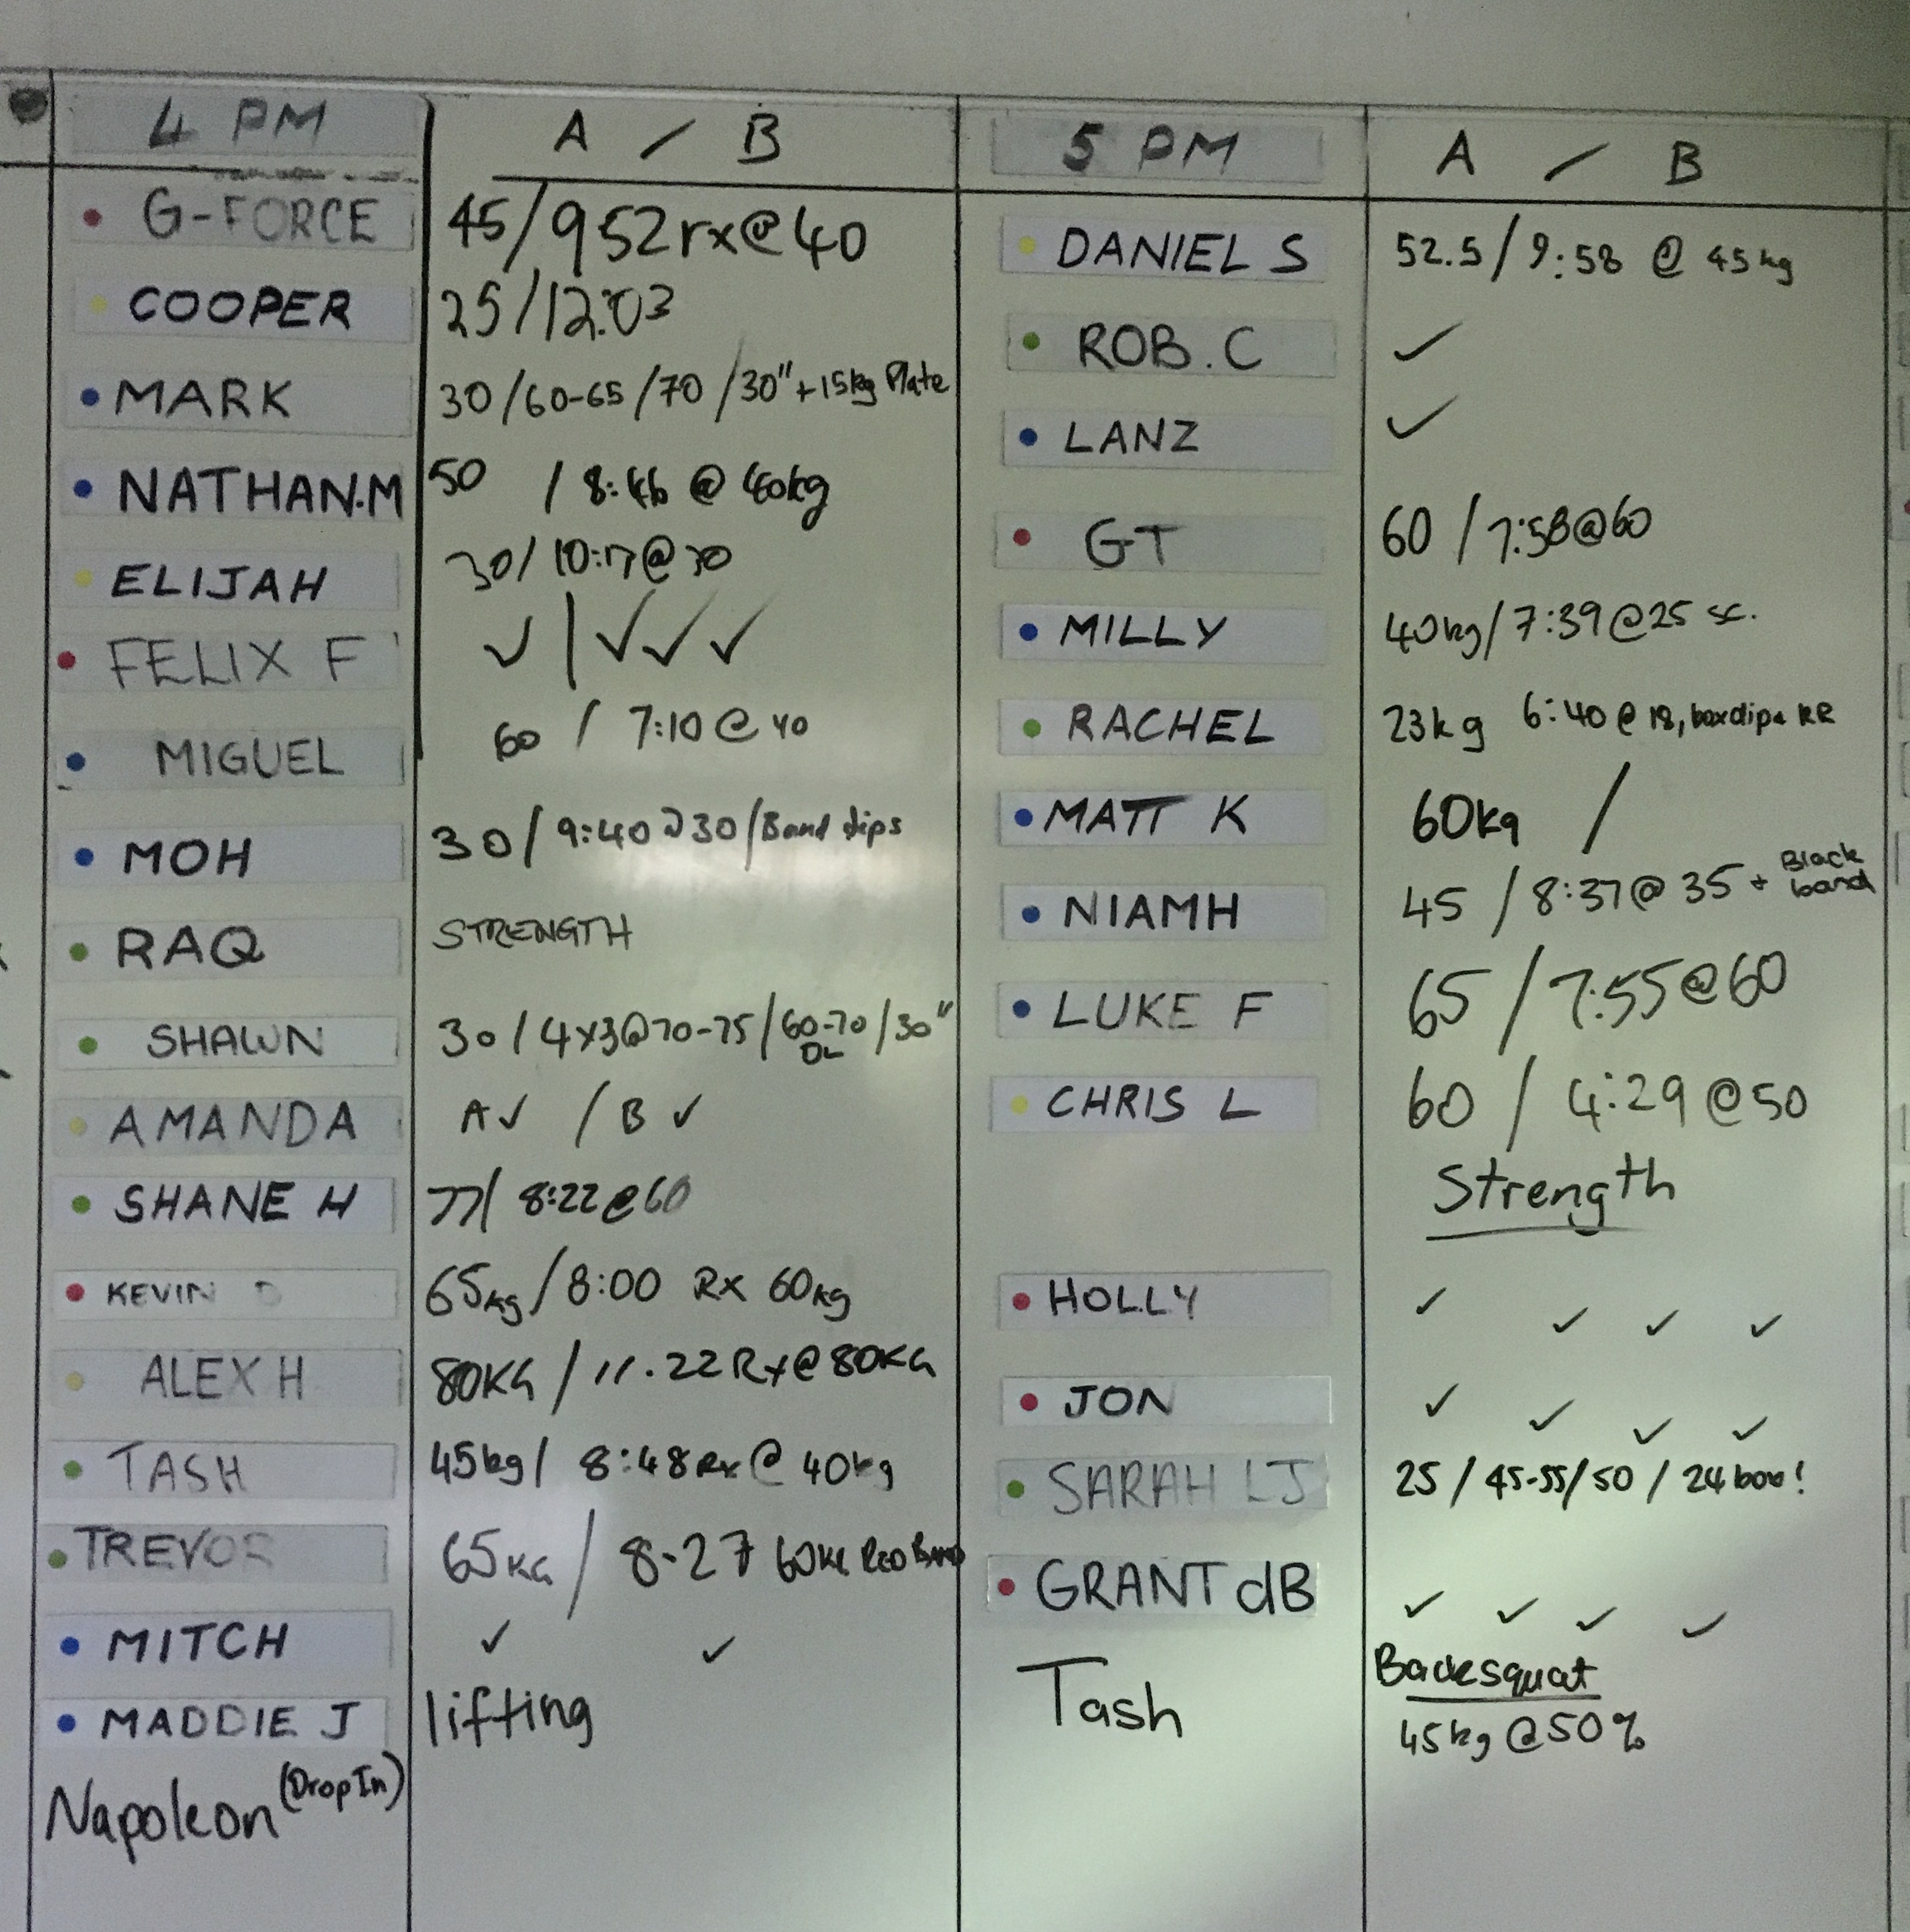 4 PM A / B
G-FORCE 45/952 rx@40
COOPER 25/12:03
MARK 30/60-65/70/30"+15kg Plate
NATHAN.M 50 / 8:46 @ 40kg
ELIJAH 30/10:17@30
FELIX F ✓ | ✓✓✓
MIGUEL 60 / 7:10 @ 40
MOH 30/9:40@30/Band dips
RAQ STRENGTH
SHAWN 30/4x3@70-75/60-70/30"
DL
AMANDA A✓ / B ✓
SHANE H 77/ 8:22@60
KEVIN D 65kg/8:00 Rx 60kg
ALEX H 80KG / 11.22 Rx@80KG
TASH 45kg/ 8:48 Rx @ 40kg
TREVOR 65KG / 8-27 60KG RED BAND
MITCH ✓ ✓
MADDIE J lifting
Napoleon (Drop In)
5 PM A / B
DANIEL S 52.5/9:58 @ 45kg
ROB.C ✓
LANZ ✓
GT 60 / 7:58@60
MILLY 40kg/7:39@25 sc.
RACHEL 23kg 6:40@18, box dips
MATT K 60kg /
NIAMH 45 / 8:37@35 + Black
band
LUKE F 65 / 7:55@60
CHRIS L 60 / 4:29@50
Strength
HOLLY ✓ ✓ ✓ ✓
JON ✓ ✓ ✓ ✓
SARAH LJ 25 / 45-55/50 / 24 box!
GRANT dB ✓ ✓ ✓ ✓
Tash Backsquat
45kg @50%